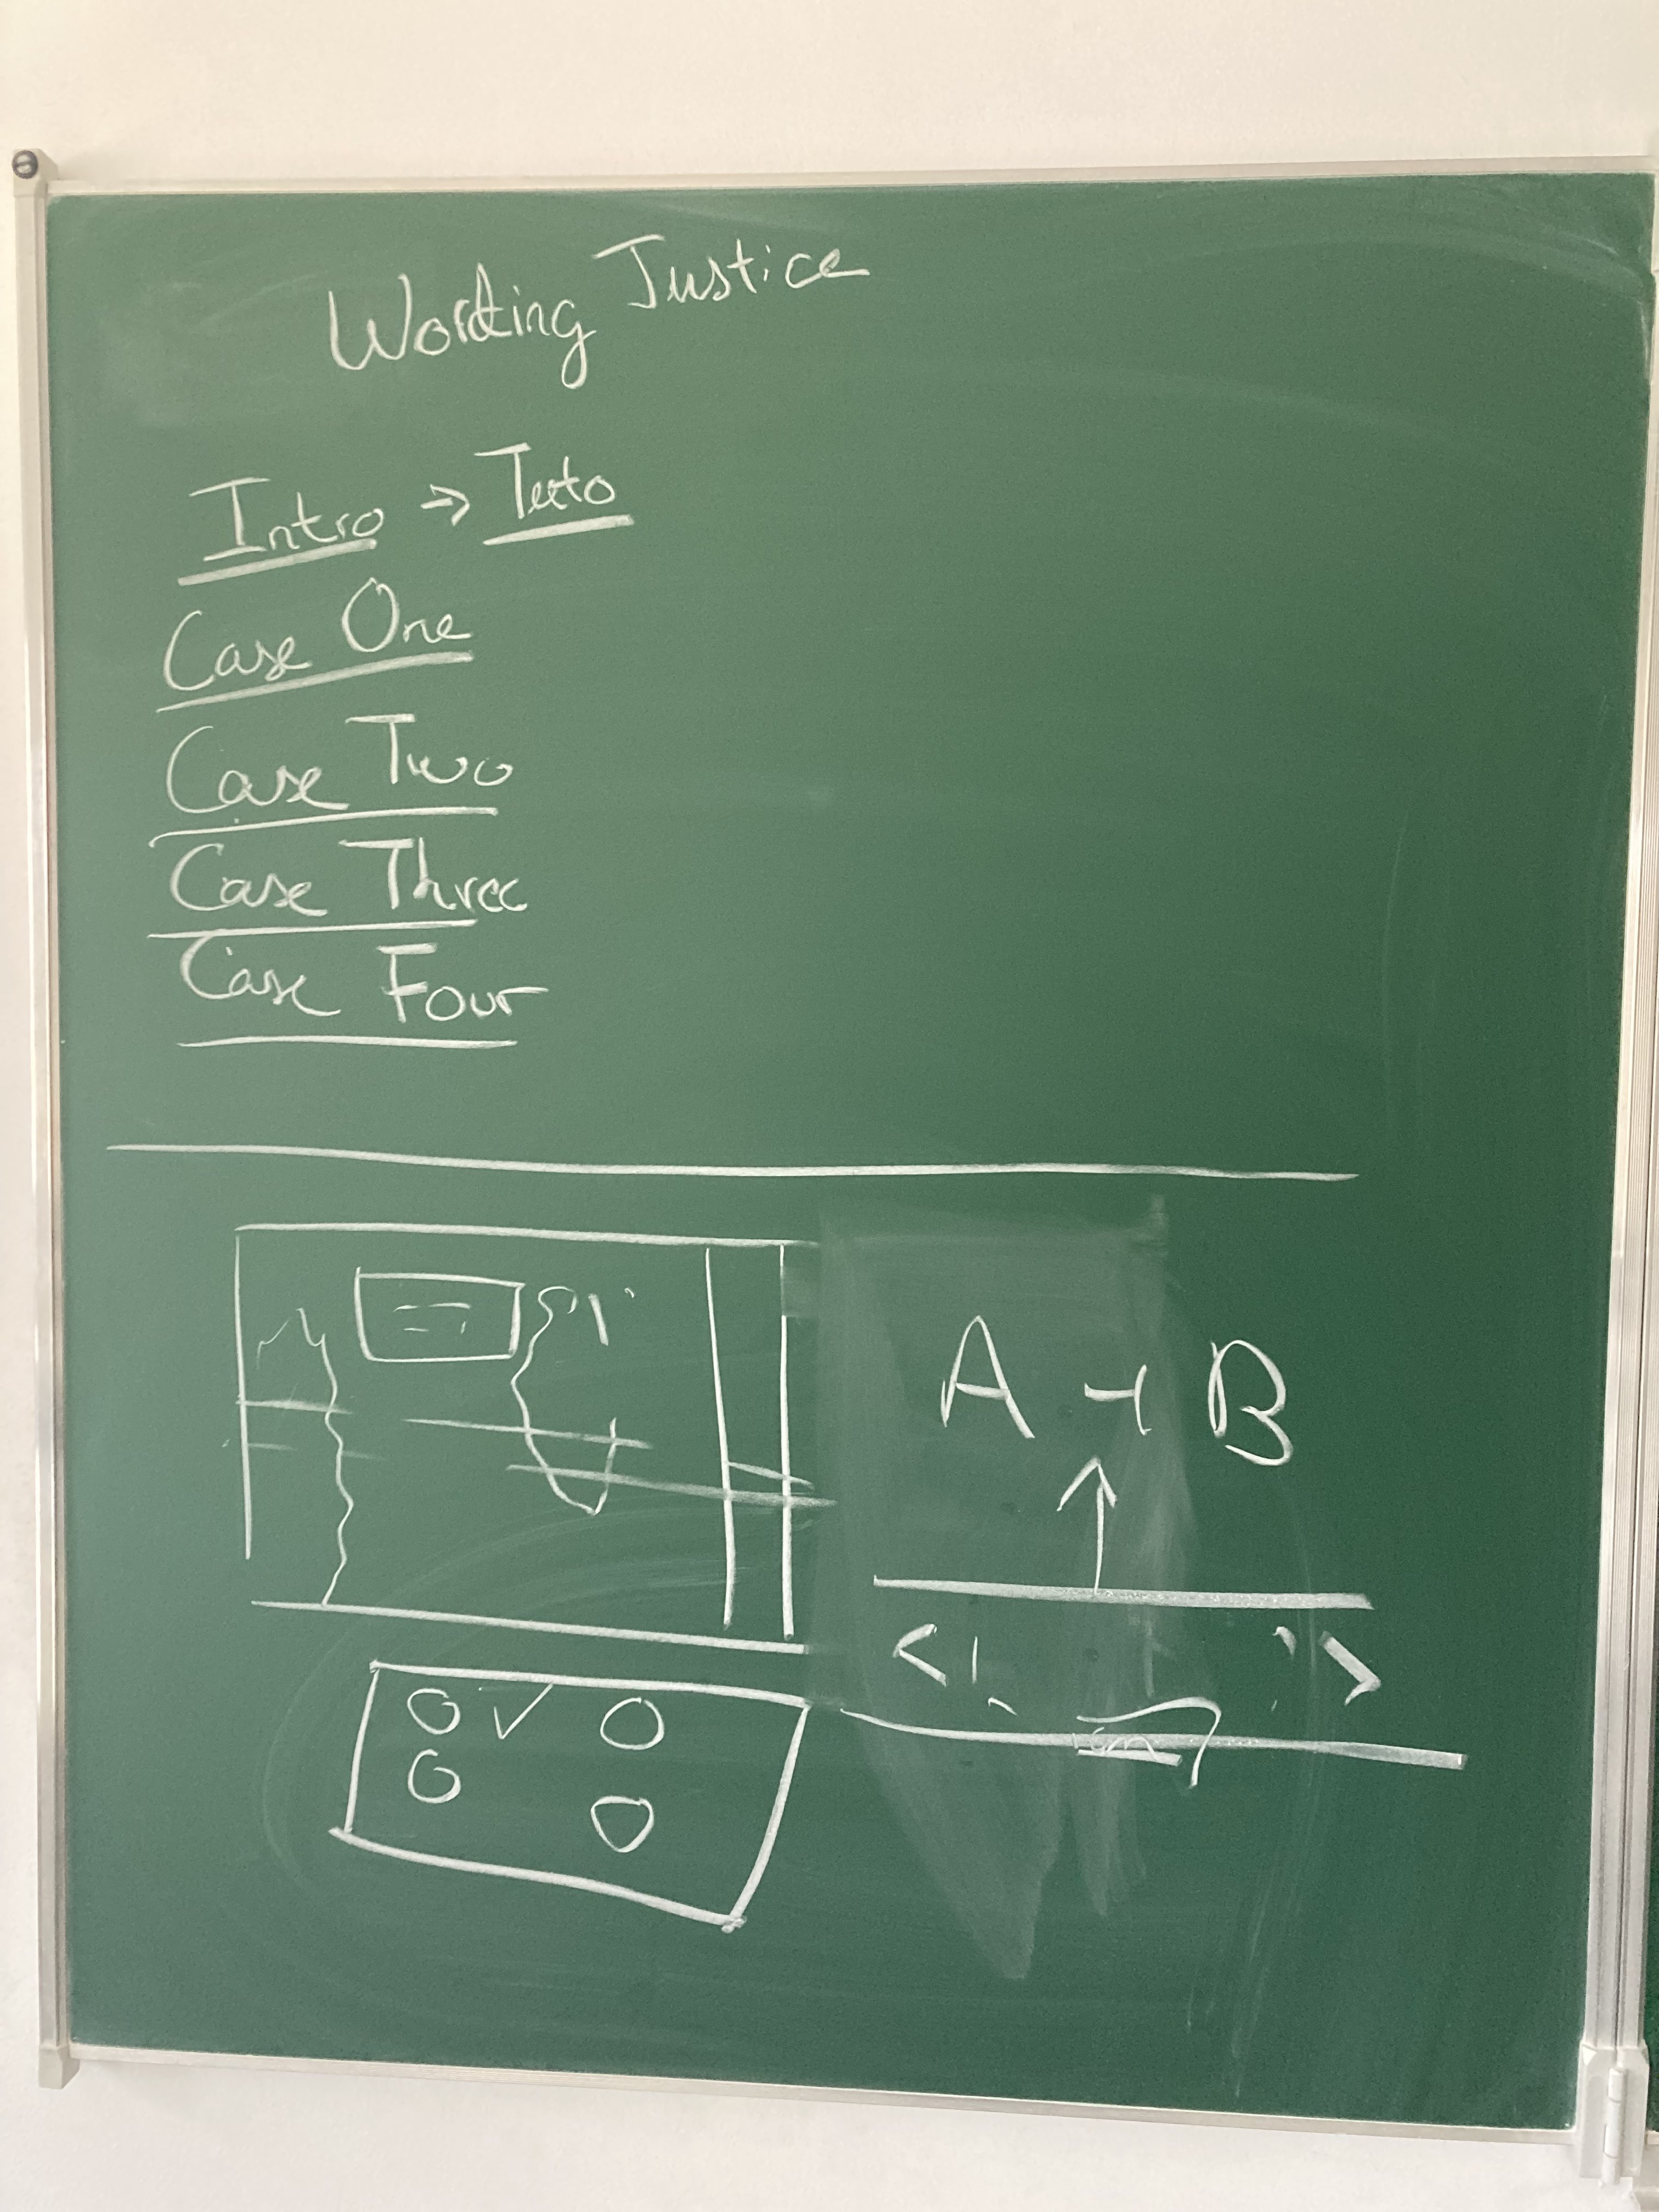 Wording Justice
Intro → Tuto
Case One
Case Two
Case Three
Case Four
A B